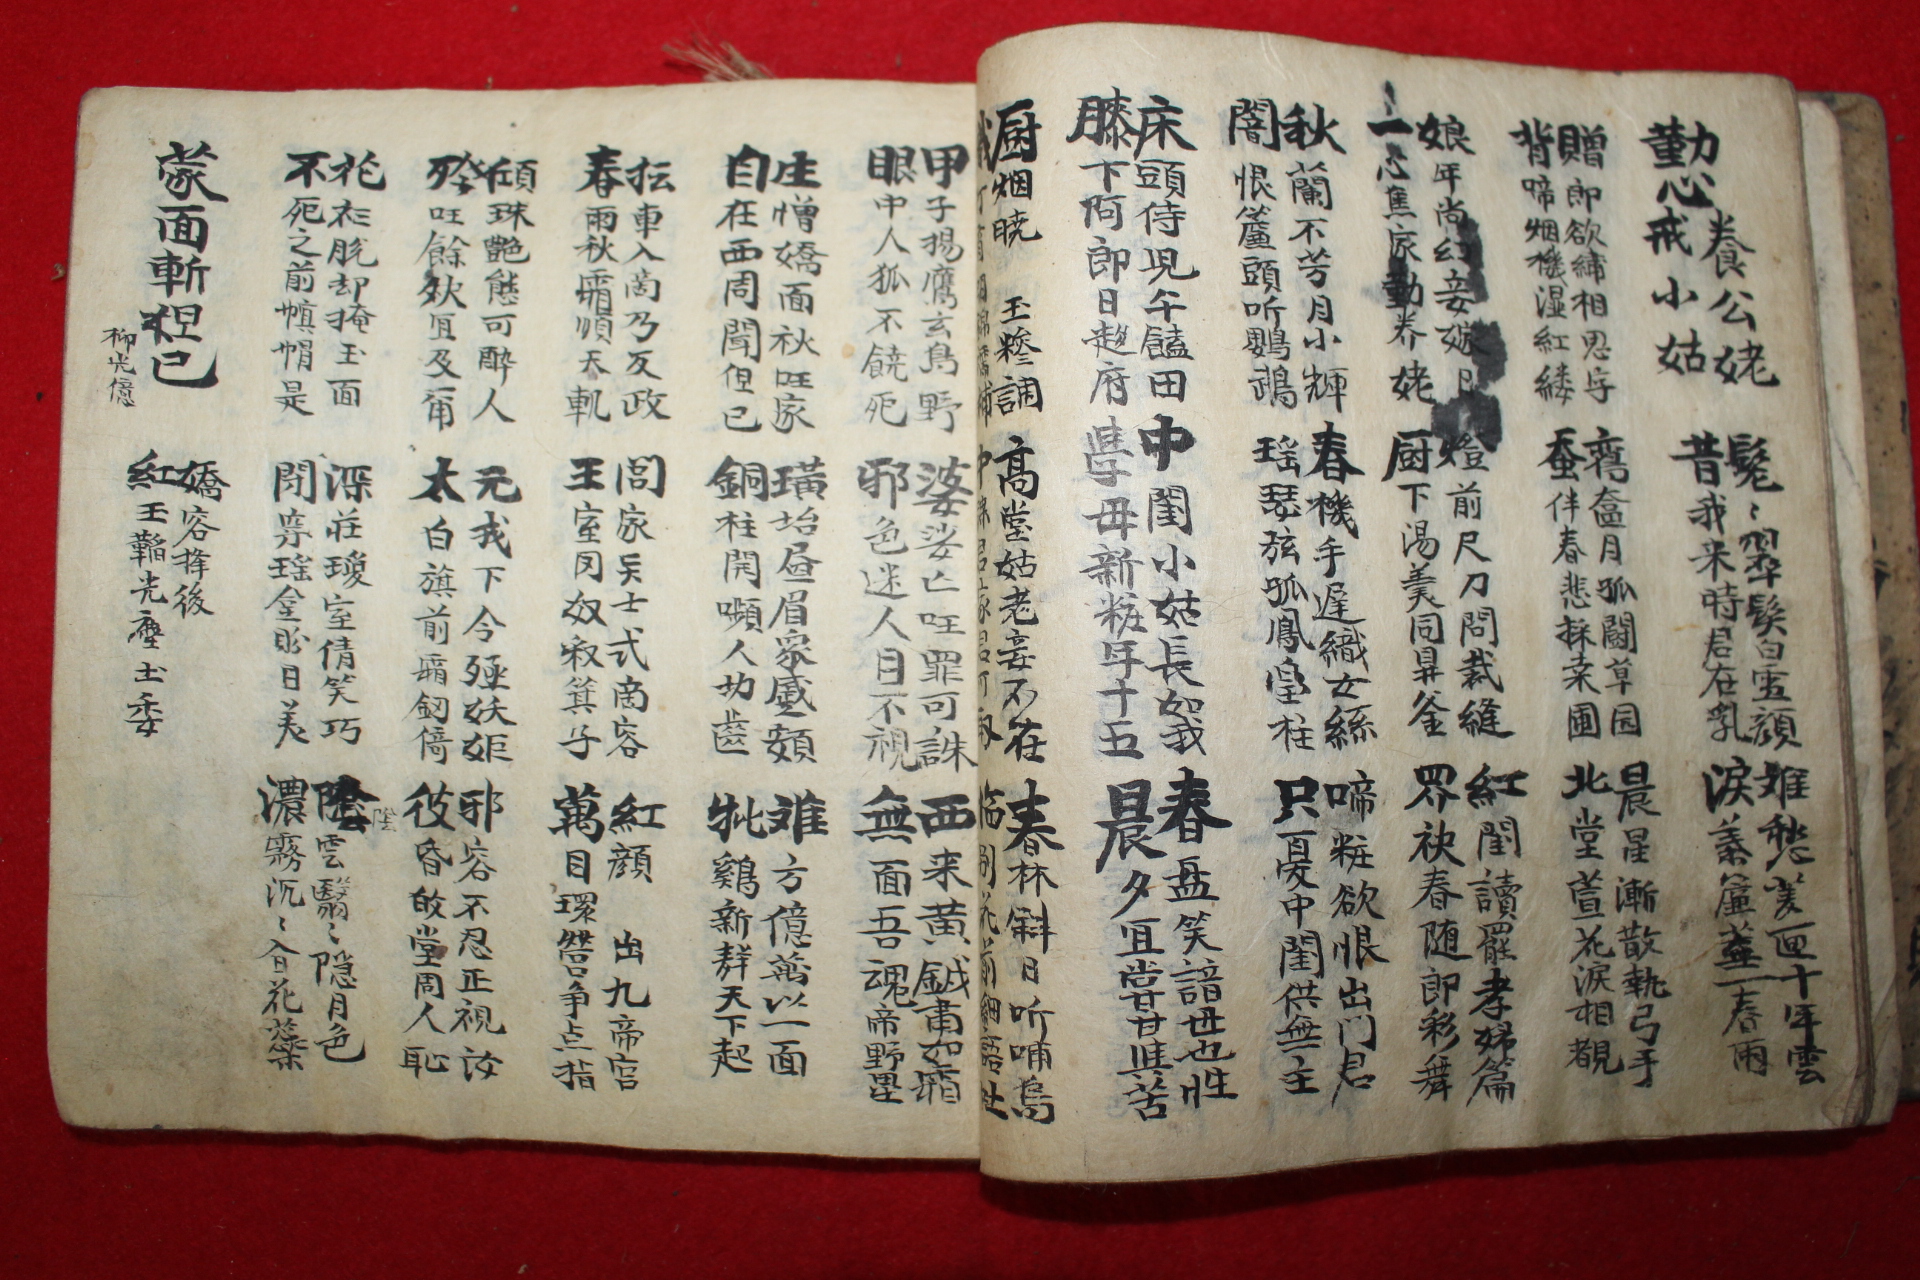 勤心養公姥
戒小姑
髧〻翠髮白雪顔
昔我来時君在乳
难愁 回十年雲
淚蓁簾盖一春雨
贈郎欲締相思字
背啼烟機湿紅縷
鸞奩月孤闘草园
蚕伴春悲採桒圃
晨星漸散執弓手
北堂萱花淚相覩
娘年尚幻妾嫁日
一心焦家動养姥
燈前尺刀問裁縫
厨下湯羹同鼎釜
紅閨讀罷孝婦篇
界袂春随郎彩舞
秋蘭不芳月小輝
闇恨簾頭听鸚鵡
春機手遲織女絲
瑶瑟弦孤鳳凰柱
啼粧欲恨出門君
只憂中閨供無主
床頭侍児午饁田
膝下阿郎日趍府
中閨小姑長如我
學母新粧年十五
春盘笑語毋也性
晨夕宜嘗甘與苦
厨烟暁 玉糝調
高堂姑老妾不在
春林斜日听哺烏
甲子揚鷹玄鳥野
眼中人狐不饒死
婆娑亡旺罪可誅
邪色迷人目不視
西来黄鉞肅如霜
無面吾魂啼野壘
生憎嬌面秋旺家
自在西周聞但已
璜坮昼眉家蹙頞
銅柱開嚬人劝齒
难方億萬以一面
牝鷄新群天下起
抎車入啇乃反政
春雨秋霜順天軌
閭家兵士式啇容
王室囚奴叔箕子
紅顔 出九帝宮
萬目環營争点指
傾珠艶態可醉人
殄旺餘妖宜及甯
元戎下令殛妖姬
太白旗前霜釼倚
邪容不忍正視汝
彼昏敀堂周人恥
花衣脱却掩玉面
不死之前幎帽是
深莊瓊室倩笑巧
閉 瑤金盼日美
陰雲翳〻隠月色
陰
濃霧沉〻含花蘂
蒙面斬妲已
柳光億
嬌容捧後
紅玉韜光塵土委